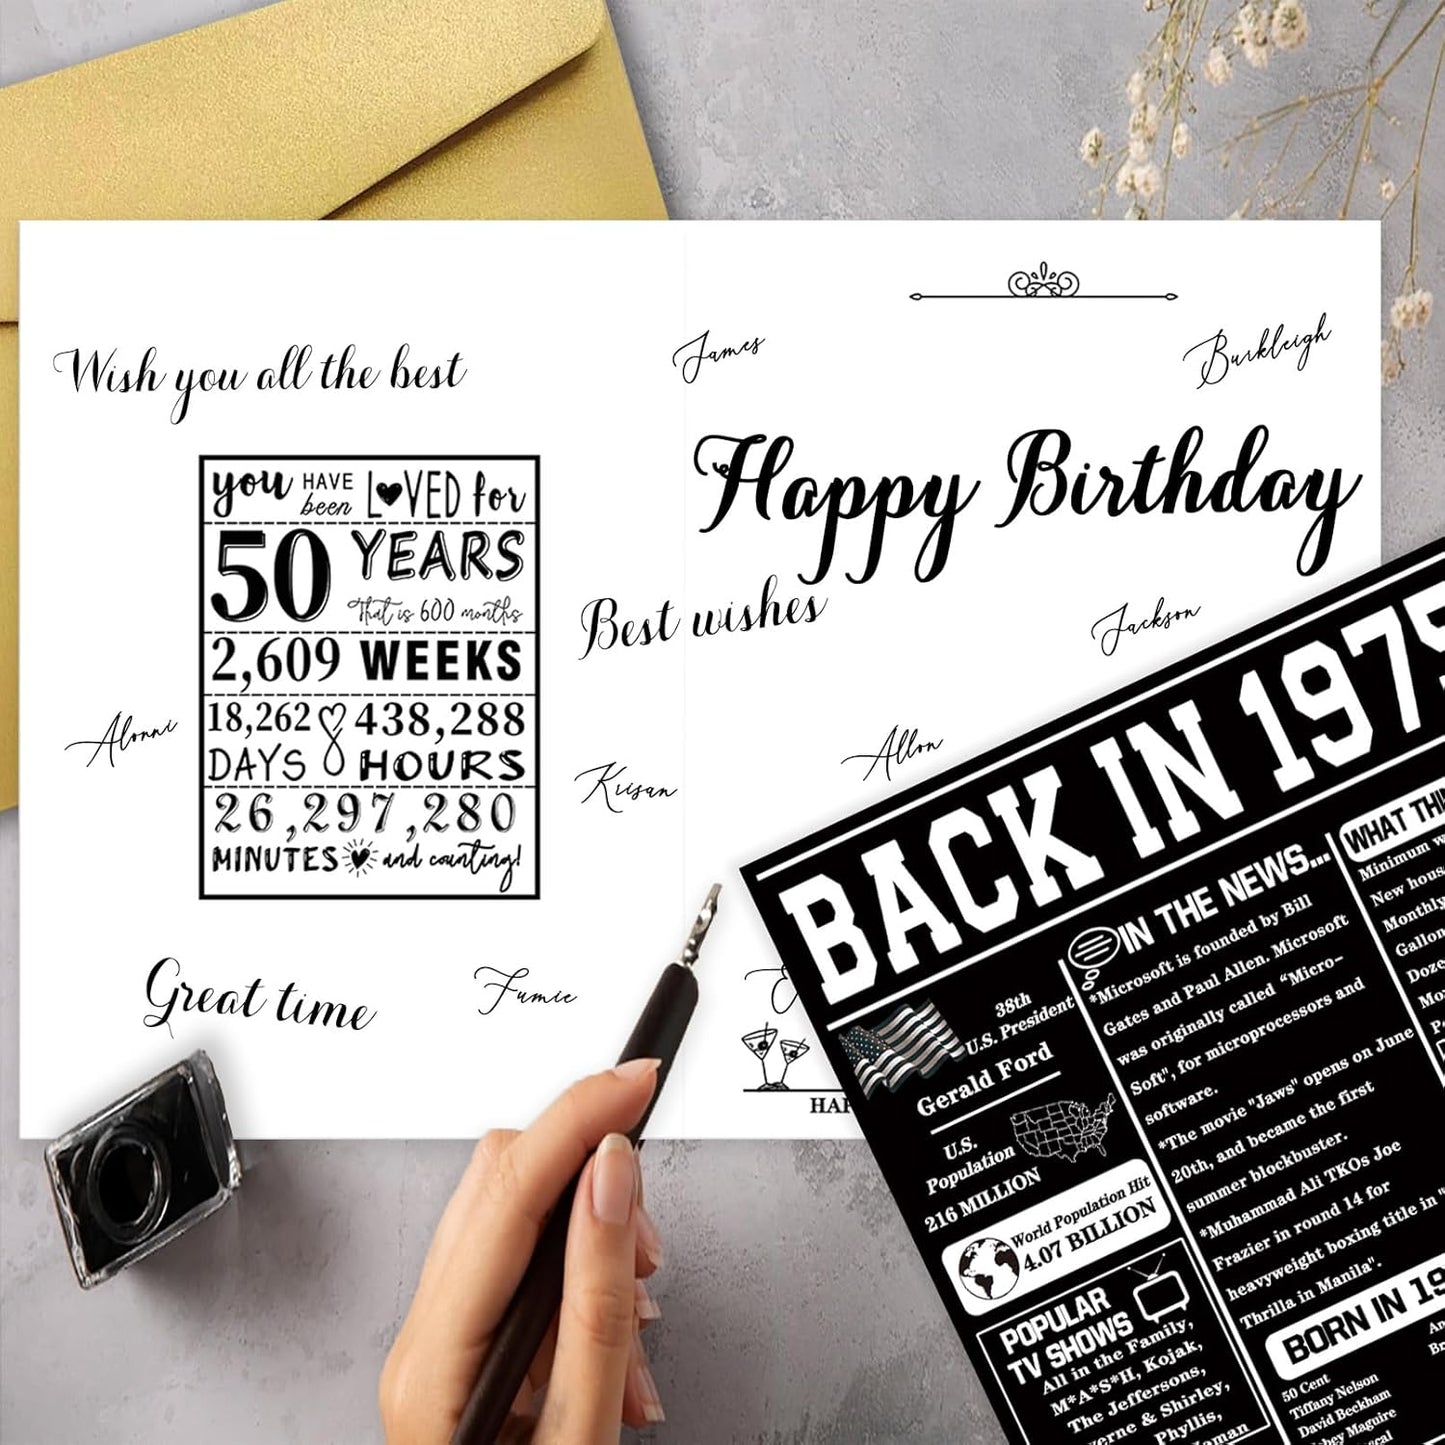 Wish you all the best
James
Burkleigh
Happy Birthday
you HAVE been LOVED for
50 YEARS
That is 600 months
2,609 WEEKS
18,262 DAYS
438,288 HOURS
26,297,280
MINUTES and counting!
Best wishes
Jackson
Alonni
Krisan
Allon
Great time
Fumie
HAP
BACK IN 1975
38th
U.S. President
Gerald Ford
U.S.
Population
216 MILLION
World Population Hit
4.07 BILLION
POPULAR
TV SHOWS
All in the Family,
M*A*S*H, Kojak,
The Jeffersons,
verne & Shirley,
Phyllis,
IN THE NEWS...
*Microsoft is founded by Bill
Gates and Paul Allen. Microsoft
was originally called "Micro-
Soft", for microprocessors and
software.
*The movie "Jaws" opens on June
20th, and became the first
summer blockbuster.
*Muhammad Ali TKOs Joe
Frazier in round 14 for
heavyweight boxing title in "
Thrilla in Manila".
BORN IN 19
50 Cent
Tiffany Nelson
David Beckham
bey Maguire
WHAT THI
Minimum w
New hous
Monthly
Gallon
Doze
Mov